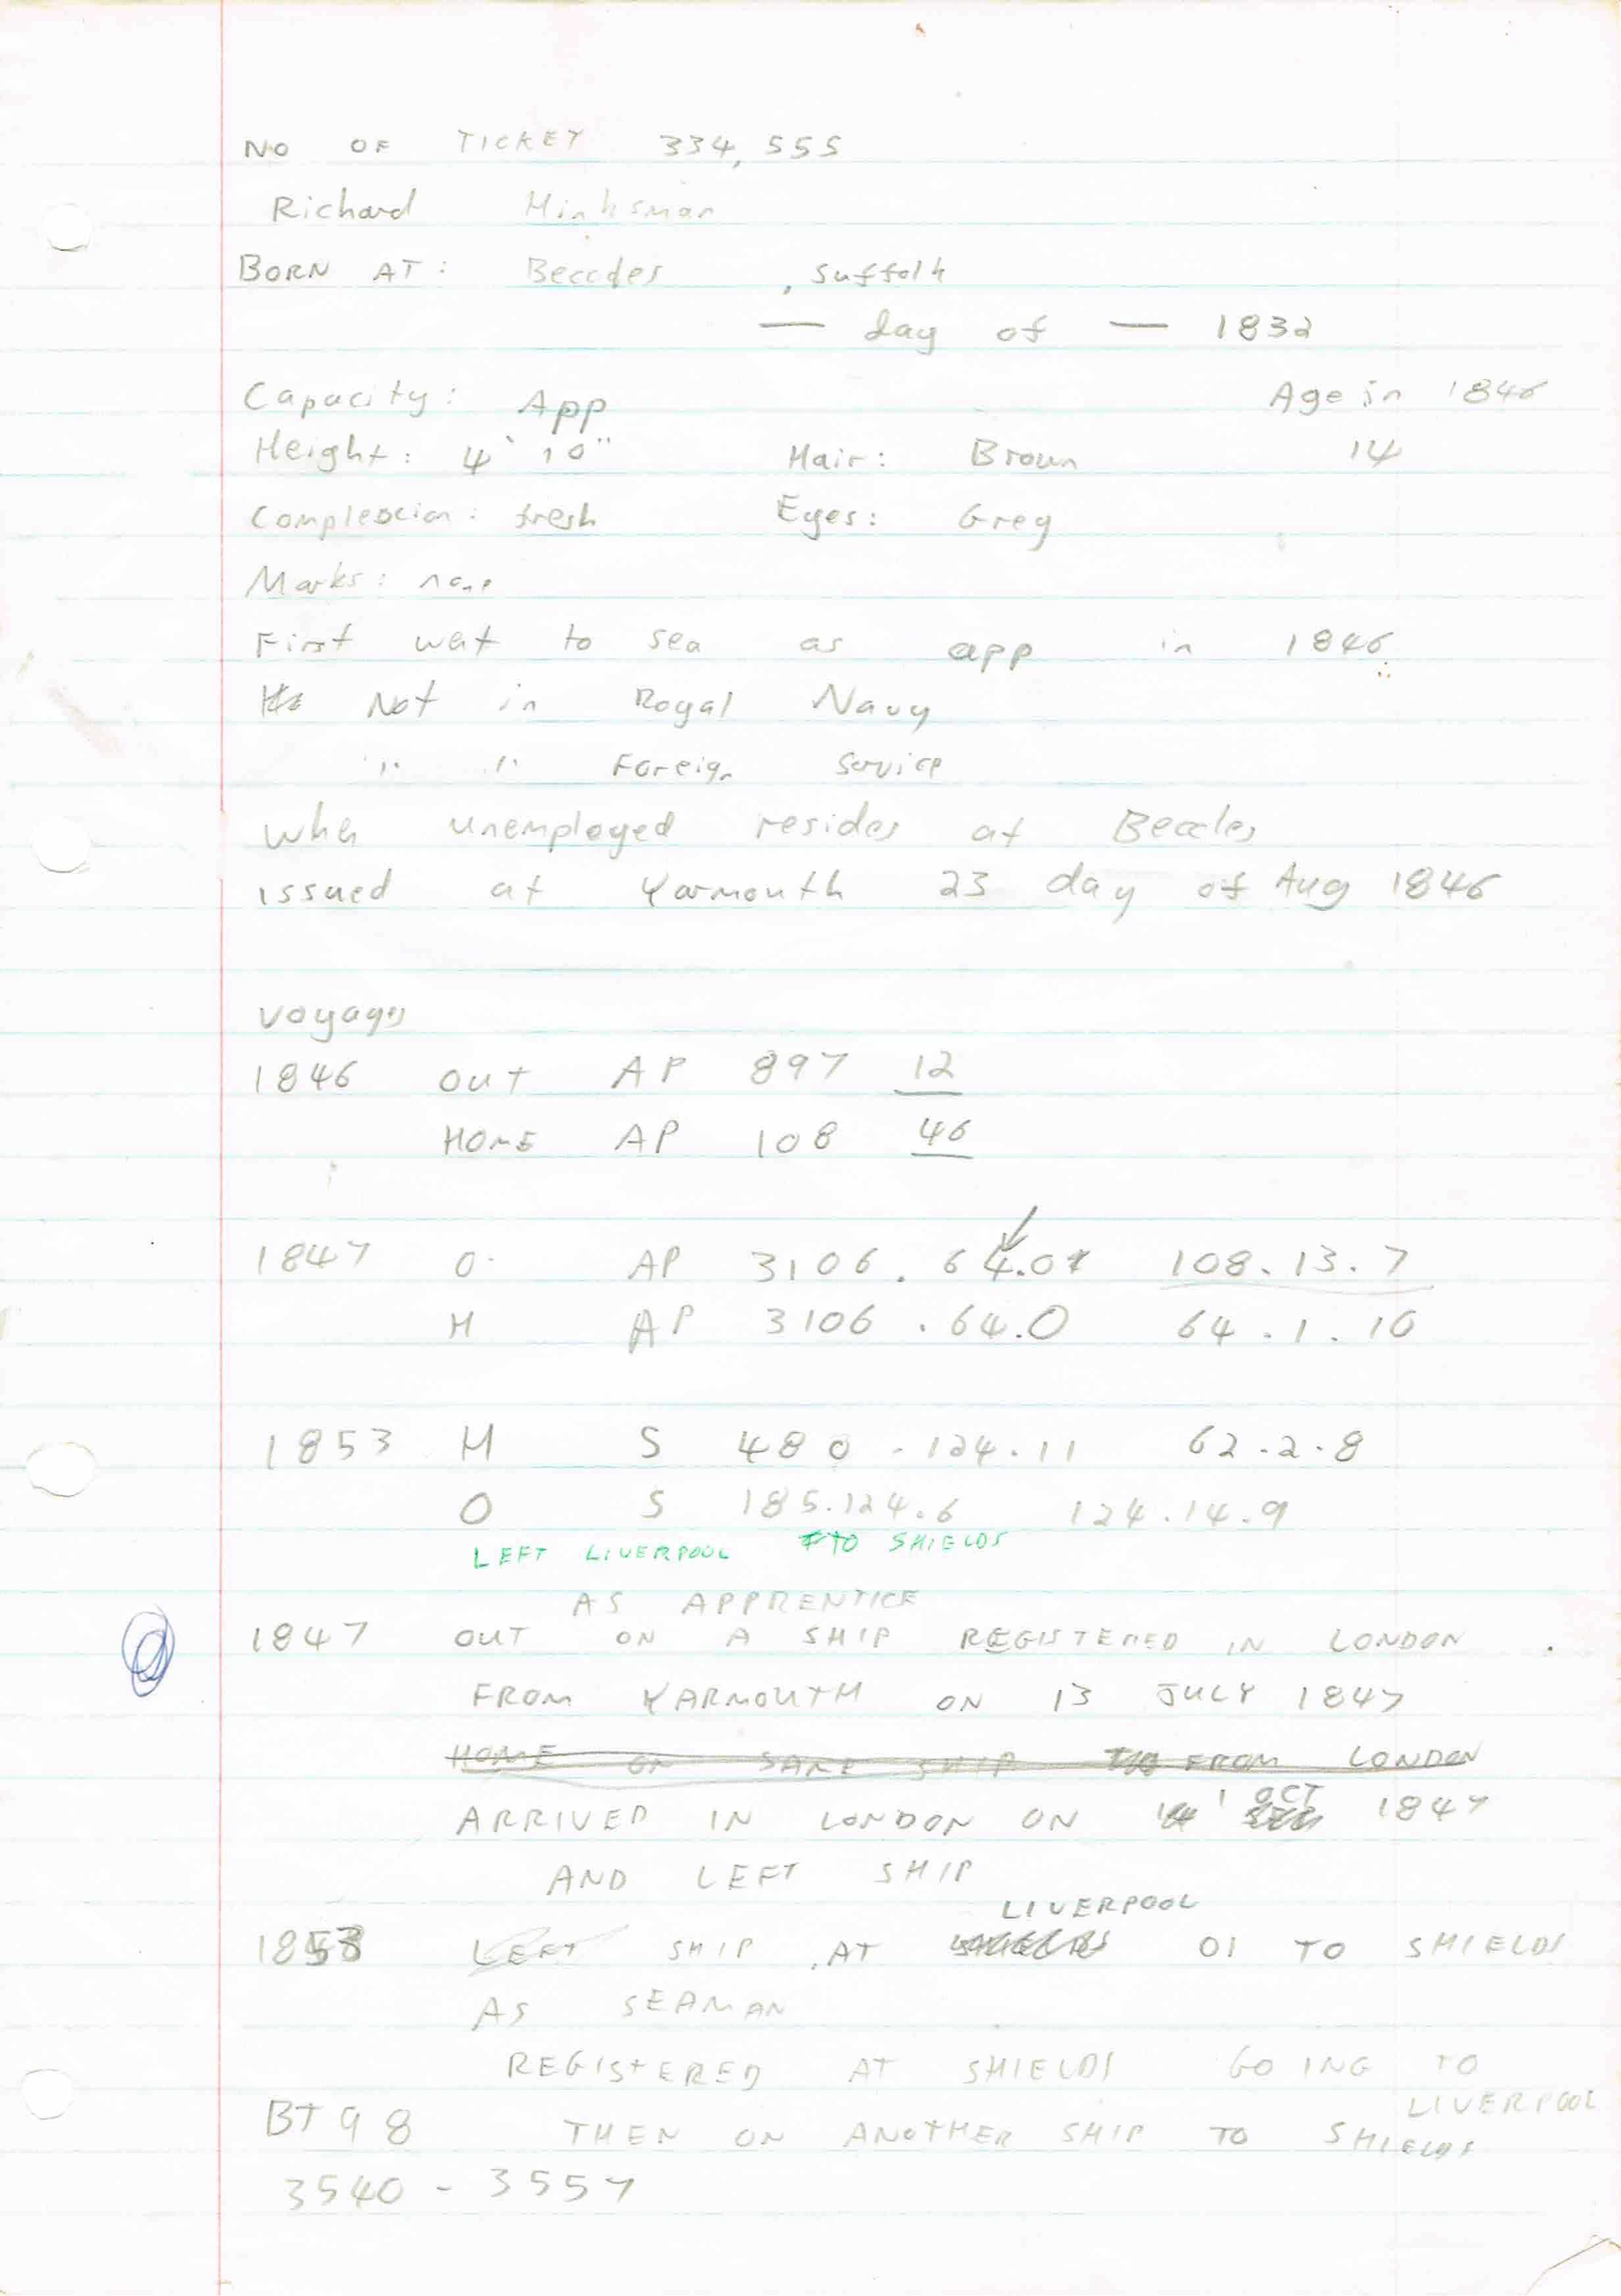 NO OF TICKET 334,555
Richard Minksman
BORN AT: Beccles , Suffolk
— day of — 1832
Capacity: App Age in 1846
Height: 4' 10" Hair: Brown 14
Complexion: fresh Eyes: Grey
Marks: none
First went to sea as app in 1846
Not in Royal Navy
" " Foreign Service
When unemployed resides at Beccles
issued at Yarmouth 23 day of Aug 1846
Voyages
1846 OUT AP 897 12
HOME AP 108 46
1847 O. AP 3106. 64.0 108.13.7
H AP 3106 .64.0 64.1.10
1853 H S 480 .124.11 62.2.8
O S 185.124.6 124.14.9
LEFT LIVERPOOL TO SHIELDS
AS APPRENTICE
1847 OUT ON A SHIP REGISTERED IN LONDON
FROM YARMOUTH ON 13 JULY 1847
HOME ON SAME SHIP FROM LONDON
ARRIVED IN LONDON ON 1 OCT 1847
AND LEFT SHIP
LIVERPOOL
1853 LEFT SHIP AT 01 TO SHIELDS
AS SEAMAN
REGISTERED AT SHIELDS GOING TO
LIVERPOOL
BT 98 THEN ON ANOTHER SHIP TO SHIELDS
3540 - 3557